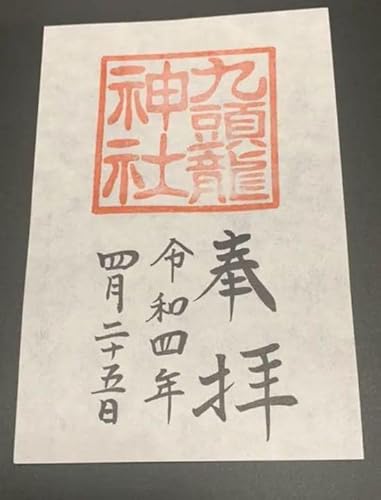 九頭龍
神社
奉拝
令和四年
四月二十五日